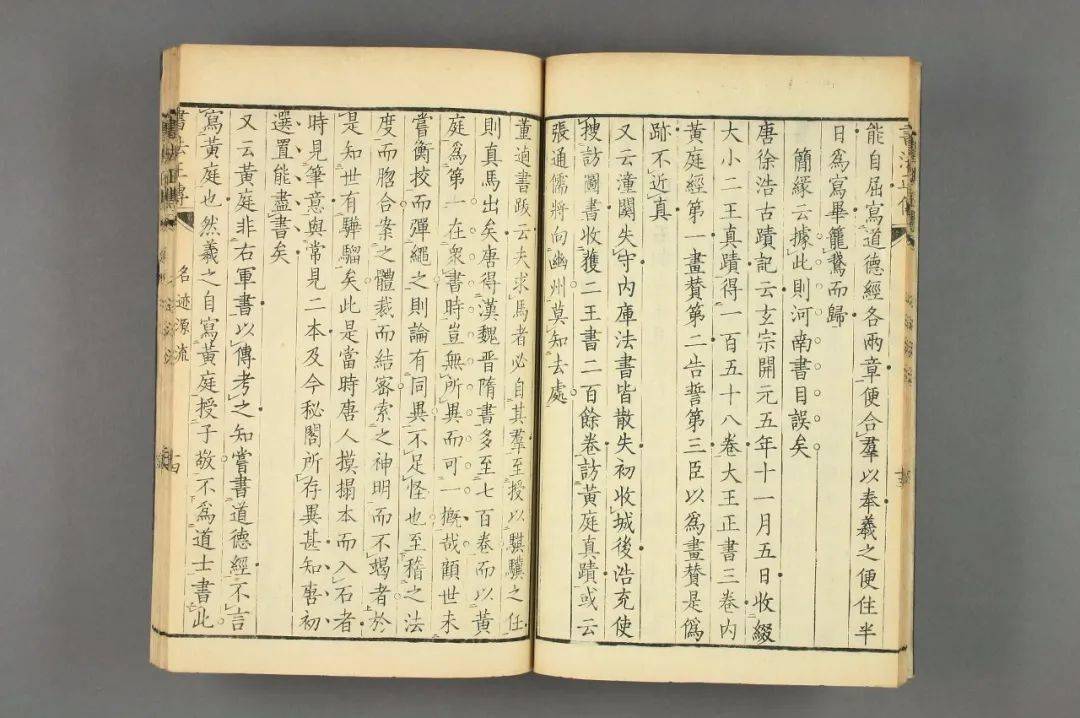 能自屈寫道德經各兩章便合羣以奉羲之便住半
日爲寫畢籠鵞而歸
簡緣云據此則河南書目誤矣
唐徐浩古蹟記云玄宗開元五年十一月五日收綴
大小二王真蹟得一百五十八卷大王正書三卷内
黄庭經第一畫賛第二告誓第三臣以爲畫賛是僞
跡不近真
又云潼關失守内庫法書皆散失初收城後浩充使
搜訪圖書收獲二王書二百餘卷訪黄庭真蹟或云
張通儒將向幽州莫知去處
董逌書跋云夫求馬者必自其羣至授以騏驥之任
則真馬出矣唐得漢魏晋隋書多至七百卷而以黄
庭爲第一在衆書時豈無所異而可一概哉顧世未
嘗衡挍而彈繩之則論有同異不足怪也至稽之法
度而脗合案之體裁而結密索之神明而不竭者於
是知世有驊騮矣此是當時唐人摸搨本而入石者
時見筆意與常見二本及今秘閣所存異甚知唐初
選置能盡書矣
又云黄庭非右軍書以傳考之知嘗書道德經不言
寫黄庭也然羲之自寫黄庭授子敬不爲道士書此
名迹源流